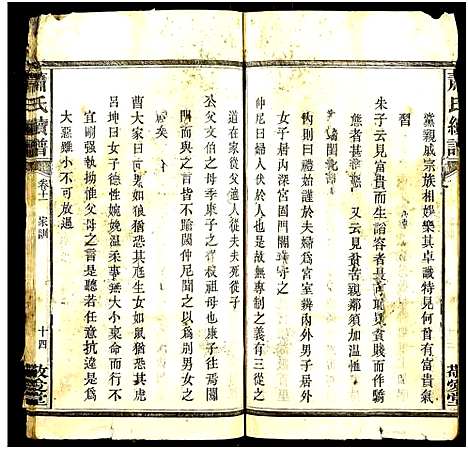 蕭氏續譜
黨親戚宗族相娛樂其卓識特見何嘗有富貴氣
習
朱子云見富貴而生諂容者最可恥見貧賤而作驕
態者賤甚 又云見貧苦親鄰須加溫恤
內則曰禮始謹於夫婦為宮室辨內外男子居外
女子居內深宮固門閽寺守之
仲尼曰婦人伏於人也是故無專制之義有三從之
道在家從父適人從夫夫死從子
公父文伯之母季康子之從祖母也康子
門而與之言皆不踰閾仲尼聞之以為別男女之
禮矣
曹大家曰生男如狼猶恐其尪生女如鼠猶恐其虎
呂坤曰女子德性婉娩溫柔事無大小稟命而行不
宜剛强執拗惟父母之言是聽若任意抗違是為
大惡雖小不可放過
蕭氏續譜
卷十
家訓
十四
敬愛堂
敬愛堂